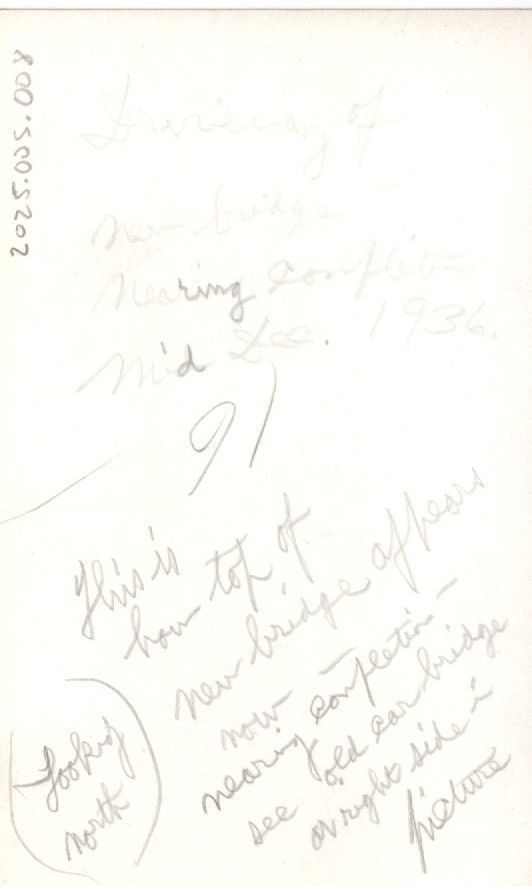 2025.005.008
Driveway of
new bridge
nearing completion
Mid Dec. 1936.
91
This is
how top of
new bridge appears
now
nearing completion –
see old car bridge
on right side in
picture
(Looking
north)